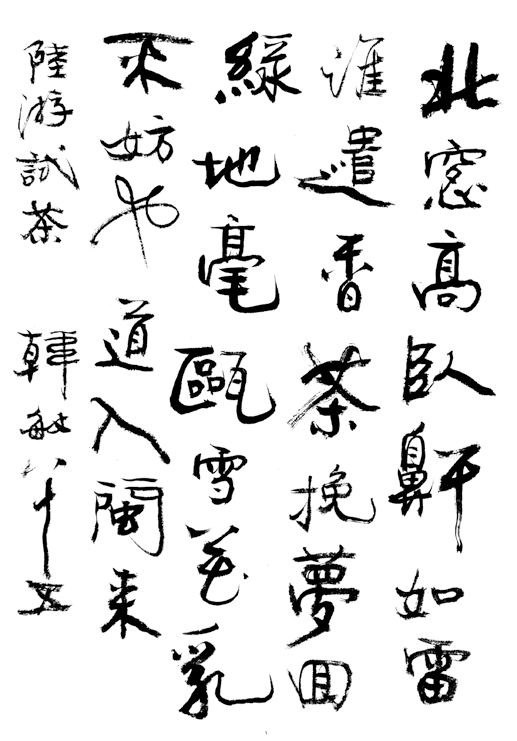 北窓高臥鼾如雷
誰遣香茶挽夢回
綠地毫甌雪花乳
不妨也道入閩来
陸游試茶
韓敏八十五